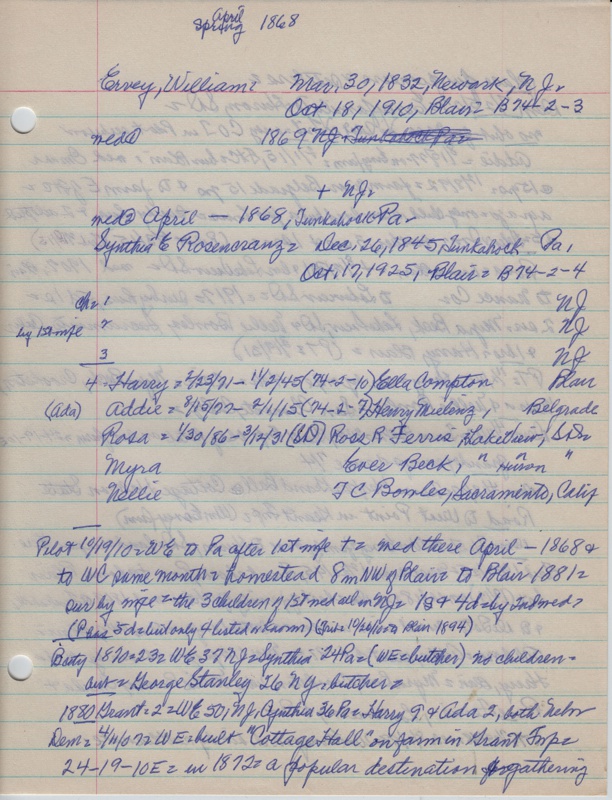 April
Spring 1868
Ervey, William = Mar. 30, 1832, Newark, N.J.
Oct 18, 1910, Blair = B74-2-3
med① 1869 NJ = Tunkahock Pa
+ NJ.
med② April — 1868, Tunkahock Pa.
Synthia E Rosencranz = Dec. 26, 1845, Tunkahock Pa.
Oct. 17, 1925, Blair = B74-2-4
Ch = 1 NJ
by 1st wife 2 NJ
3 NJ
4 = Harry = 2/23/71 - 11/2/45 (74-2-10) Ella Compton Blair
(Ada) Addie = 8/15/77 - 2/1/15 (74-2-7) Henry Mielenz, Belgrade
Rosa = 1/30/86 - 3/12/31 (SD) Ross R Ferris, Lakeview, SD=
Myra Ever Beck, " Huron "
Nellie F C Bowles, Sacramento, Calif
Pilot 10/19/10 = WE to Pa after 1st wife + = med there April - 1868 &
to WC same month = homestead 8 m NW of Blair = to Blair 1881 =
sur by wife = the 3 children of 1st med all in NJ = 1s & 4d = by 2nd med =
(Pass 5d = but only 4 listed known) 10/26/10 Blair 1894)
1870 = 23 = WE 37 NJ = Synthia 24 Pa = (WE = butcher) no children =
out = George Stanley 26 NY, butcher =
1880 Grant = 2 = WE 50, NJ, Cynthia 36 Pa = Harry 9 & Ada 2, both Nebr
Dem = 4/11/07 = WE = built "Cottage Hall" on farm in Grant Twp =
24-19-10E = in 1872 = a popular destination for gathering